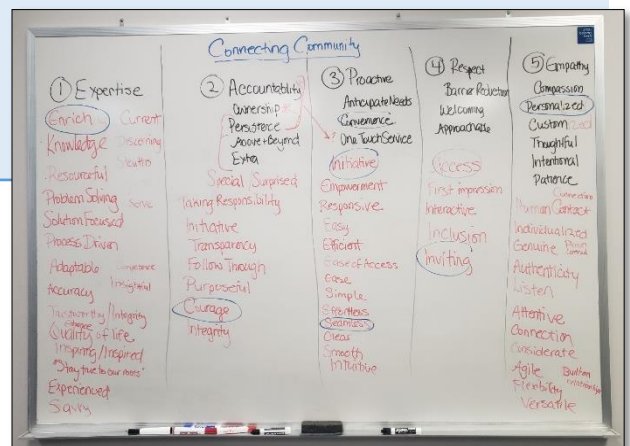 Connecting Community
① Expertise
Enrich Current
Knowledge Discerning
Resourceful Sleuth
Problem Solving Solve
Solution Focused
Process Driven
Adaptable
Accuracy Insightful
Trustworthy/Integrity
Quality of life
Inspiring/Inspired
"Stay true to our roots"
Experienced
Savvy
② Accountability
Ownership
Persistence
Above+Beyond
Extra
Special Surprised
Taking Responsibility
Initiative
Transparency
Follow Through
Purposeful
Courage
Integrity
③ Proactive
Anticipate Needs
Convenience
One Touch Service
Initiative
Empowerment
Responsive
Easy
Efficient
Ease of Access
Ease
Simple
Effortless
Seamless
Clear
Smooth
Intuitive
④ Respect
Barrier Reduction
Welcoming
Approachable
Access
First impression
Interactive
Inclusion
Inviting
⑤ Empathy
Compassion
Personalized
Customized
Thoughtful
Intentional
Patience
Connection
Human Contact
Individualized
Genuine
Authenticity
Listen
Attentive
Connection
Considerate
Agile
Flexibility
Versatile